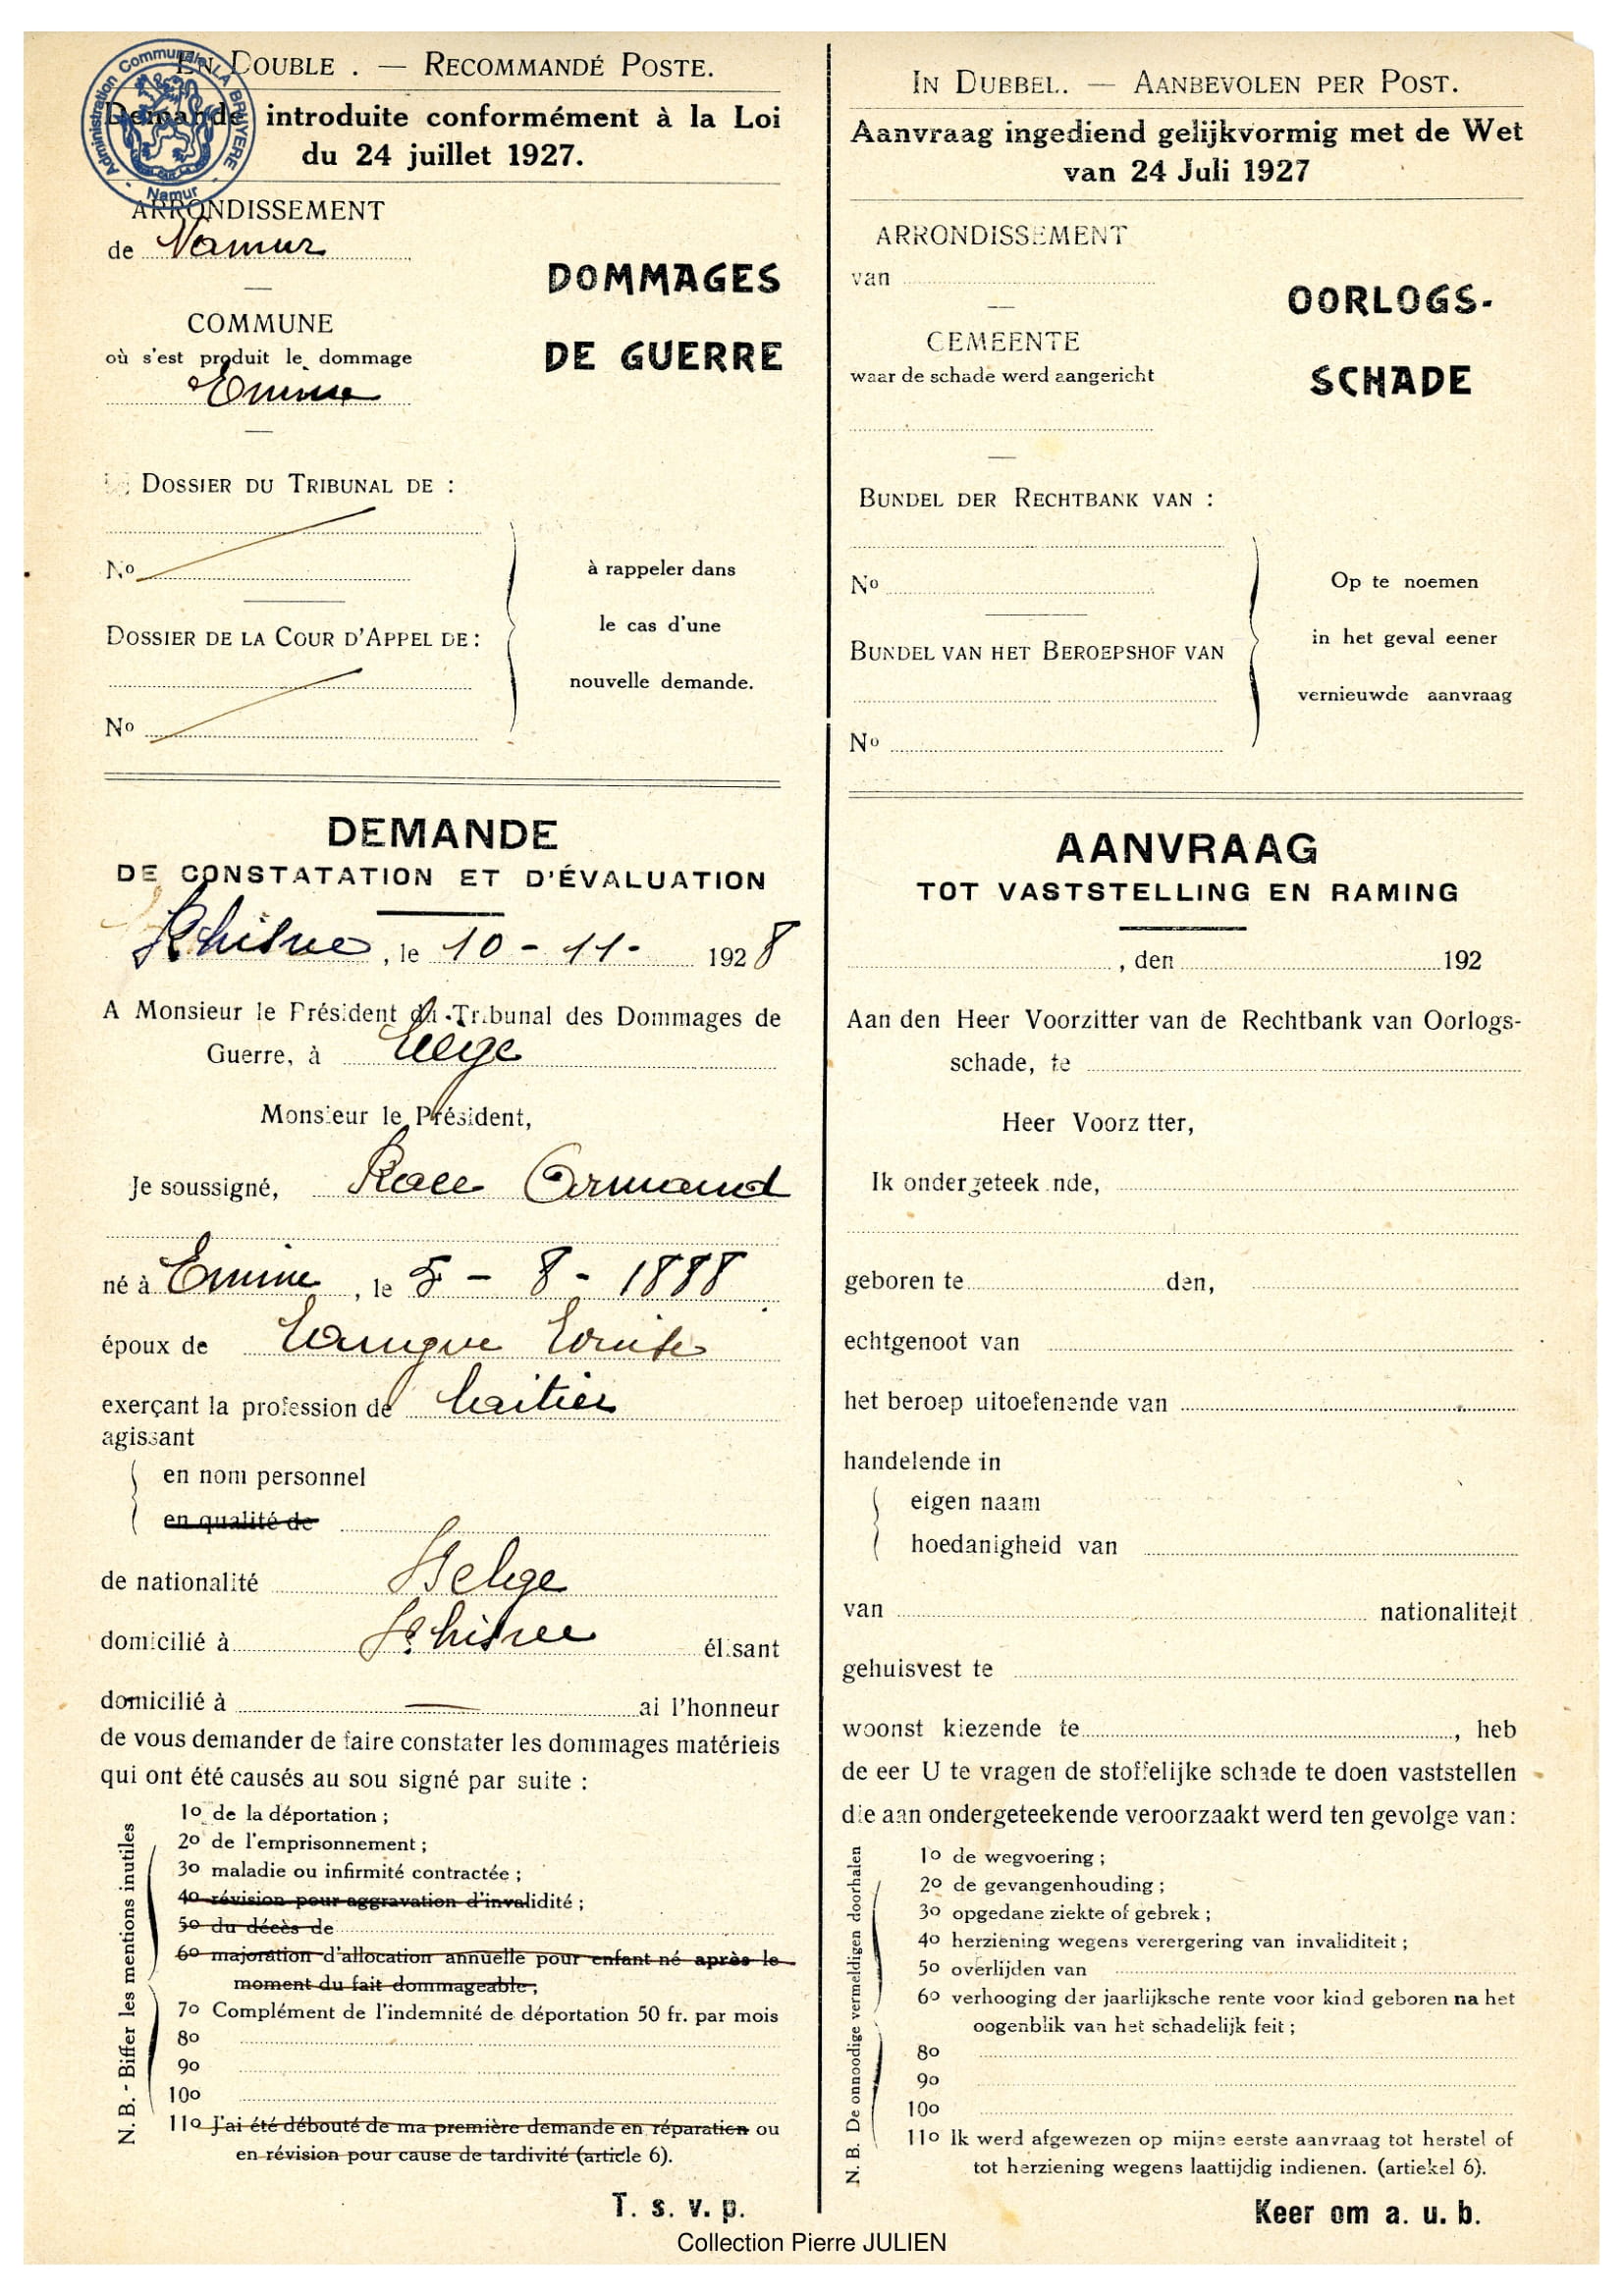 Administration Communale LA BRUYERE - Namur -
EN DOUBLE . — RECOMMANDÉ POSTE.
Demande introduite conformément à la Loi
du 24 juillet 1927.
ARRONDISSEMENT
de Namur
DOMMAGES
DE GUERRE
COMMUNE
où s'est produit le dommage
Emines
DOSSIER DU TRIBUNAL DE :
No
DOSSIER DE LA COUR D'APPEL DE :
No
à rappeler dans
le cas d'une
nouvelle demande.
DEMANDE
DE CONSTATATION ET D'ÉVALUATION
Rhisne, le 10 - 11 - 1928
A Monsieur le Président du Tribunal des Dommages de
Guerre, à Liège
Monsieur le Président,
Je soussigné, Race Armand
né à Emine, le 5 - 8 - 1888
époux de Louise
exerçant la profession de laitier
agissant
en nom personnel
en qualité de
de nationalité Belge
domicilié à Rhisnes élisant
domicilié à — ai l'honneur
de vous demander de faire constater les dommages matériels
qui ont été causés au sou signé par suite :
N. B. - Biffer les mentions inutiles
1o de la déportation ;
2o de l'emprisonnement ;
3o maladie ou infirmité contractée ;
4o révision pour aggravation d'invalidité ;
5o du décès de
6o majoration d'allocation annuelle pour enfant né après le
moment du fait dommageable ;
7o Complément de l'indemnité de déportation 50 fr. par mois
8o
9o
10o
11o J'ai été débouté de ma première demande en réparation ou
en révision pour cause de tardivité (article 6).
T. s. v. p.
IN DUBBEL. — AANBEVOLEN PER POST.
Aanvraag ingediend gelijkvormig met de Wet
van 24 Juli 1927
ARRONDISSEMENT
van
OORLOGS-
SCHADE
GEMEENTE
waar de schade werd aangericht
BUNDEL DER RECHTBANK VAN :
No
BUNDEL VAN HET BEROEPSHOF VAN
No
Op te noemen
in het geval eener
vernieuwde aanvraag
AANVRAAG
TOT VASTSTELLING EN RAMING
, den 192
Aan den Heer Voorzitter van de Rechtbank van Oorlogs-
schade, te
Heer Voorz tter,
Ik ondergeteek nde,
geboren te den,
echtgenoot van
het beroep uitoefenende van
handelende in
eigen naam
hoedanigheid van
van nationaliteit
gehuisvest te
woonst kiezende te , heb
de eer U te vragen de stoffelijke schade te doen vaststellen
die aan ondergeteekende veroorzaakt werd ten gevolge van :
N. B. De onnoodige vermeldigen doorhalen
1o de wegvoering ;
2o de gevangenhouding ;
3o opgedane ziekte of gebrek ;
4o herziening wegens verergering van invaliditeit ;
5o overlijden van
6o verhooging der jaarlijksche rente voor kind geboren na het
oogenblik van het schadelijk feit ;
8o
9o
10o
11o Ik werd afgewezen op mijne eerste aanvraag tot herstel of
tot herziening wegens laattijdig indienen. (artiekel 6).
Keer om a. u. b.
Collection Pierre JULIEN